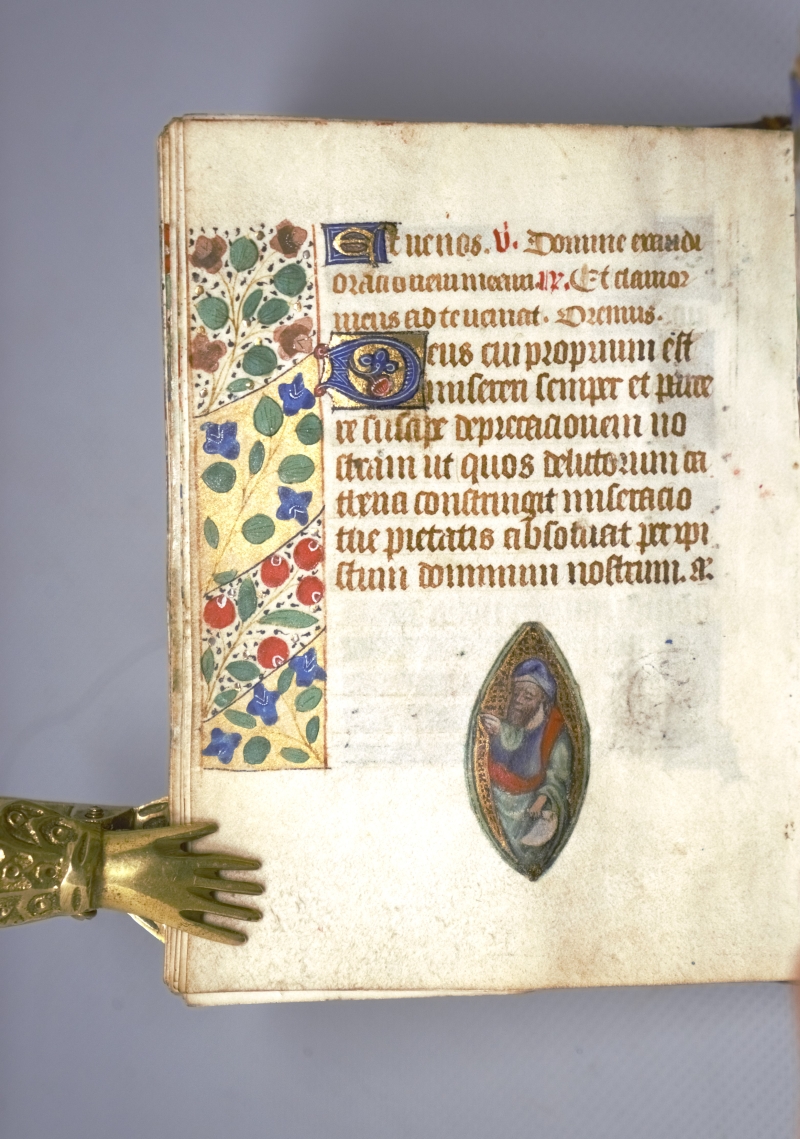 Et ue nos. V. Domine exaudi
oracionem meam. R. Et clamor
meus ad te ueniat. Oremus.
Deus cui proprium est
misereri semper et parce
re suscipe deprecacionem no
stram ut quos delictorum ca
thena constringit miseracio
tue pietatis absoluat per xpi
stum dominum nostrum. a.